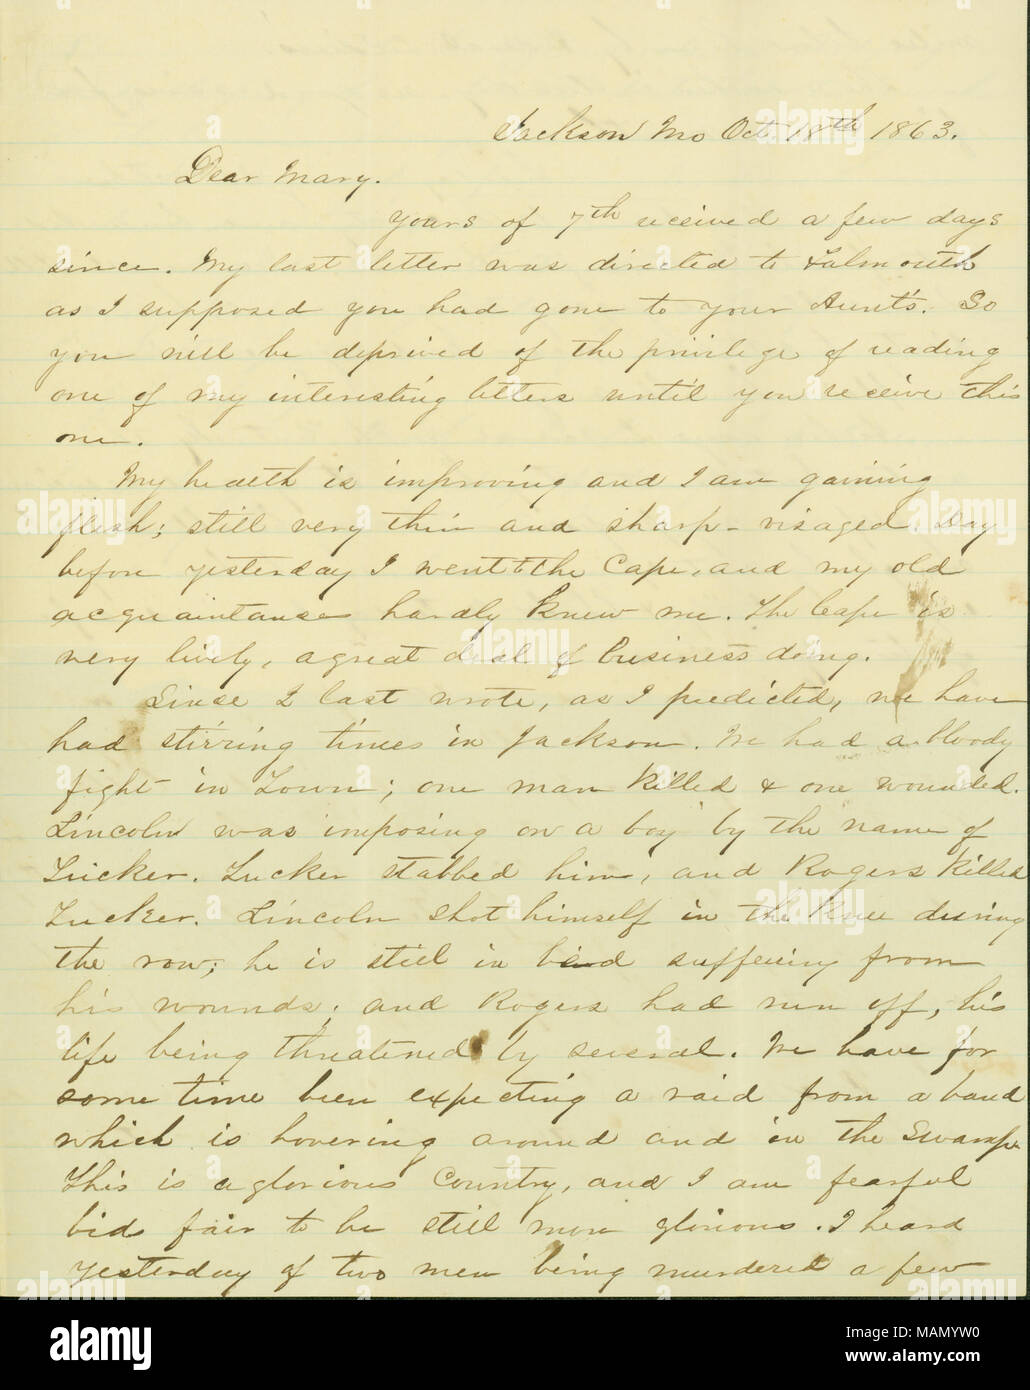 Jackson Mo Oct. 18th 1863.
Dear Mary.
Yours of 7th received a few days
since. My last letter was directed to Falmouth
as I supposed you had gone to your Aunt's. So
you will be deprived of the privilege of reading
one of my interesting letters until you receive this
one.
My health is improving and I am gaining
flesh; still very thin and sharp-visaged. Day
before yesterday I went to the Cape, and my old
acquaintances hardly knew me. The Cape is
very lively, a great deal of business doing.
Since I last wrote, as I predicted, we have
had stirring times in Jackson. We had a bloody
fight in Town; one man killed & one wounded.
Lincoln was imposing on a boy by the name of
Tucker. Tucker stabbed him, and Rogers killed
Tucker. Lincoln shot himself in the knee during
the row; he is still in bed suffering from
his wounds; and Rogers had run off, his
life being threatened by several. We have for
some time been expecting a raid from a band
which is hovering around and in the Swamp
This is a glorious Country, and I am fearful
bids fair to be still more glorious. I heard
yesterday of two men being murdered a few
a alamy
alamy
Image ID: MAMYW0
www.alamy.com